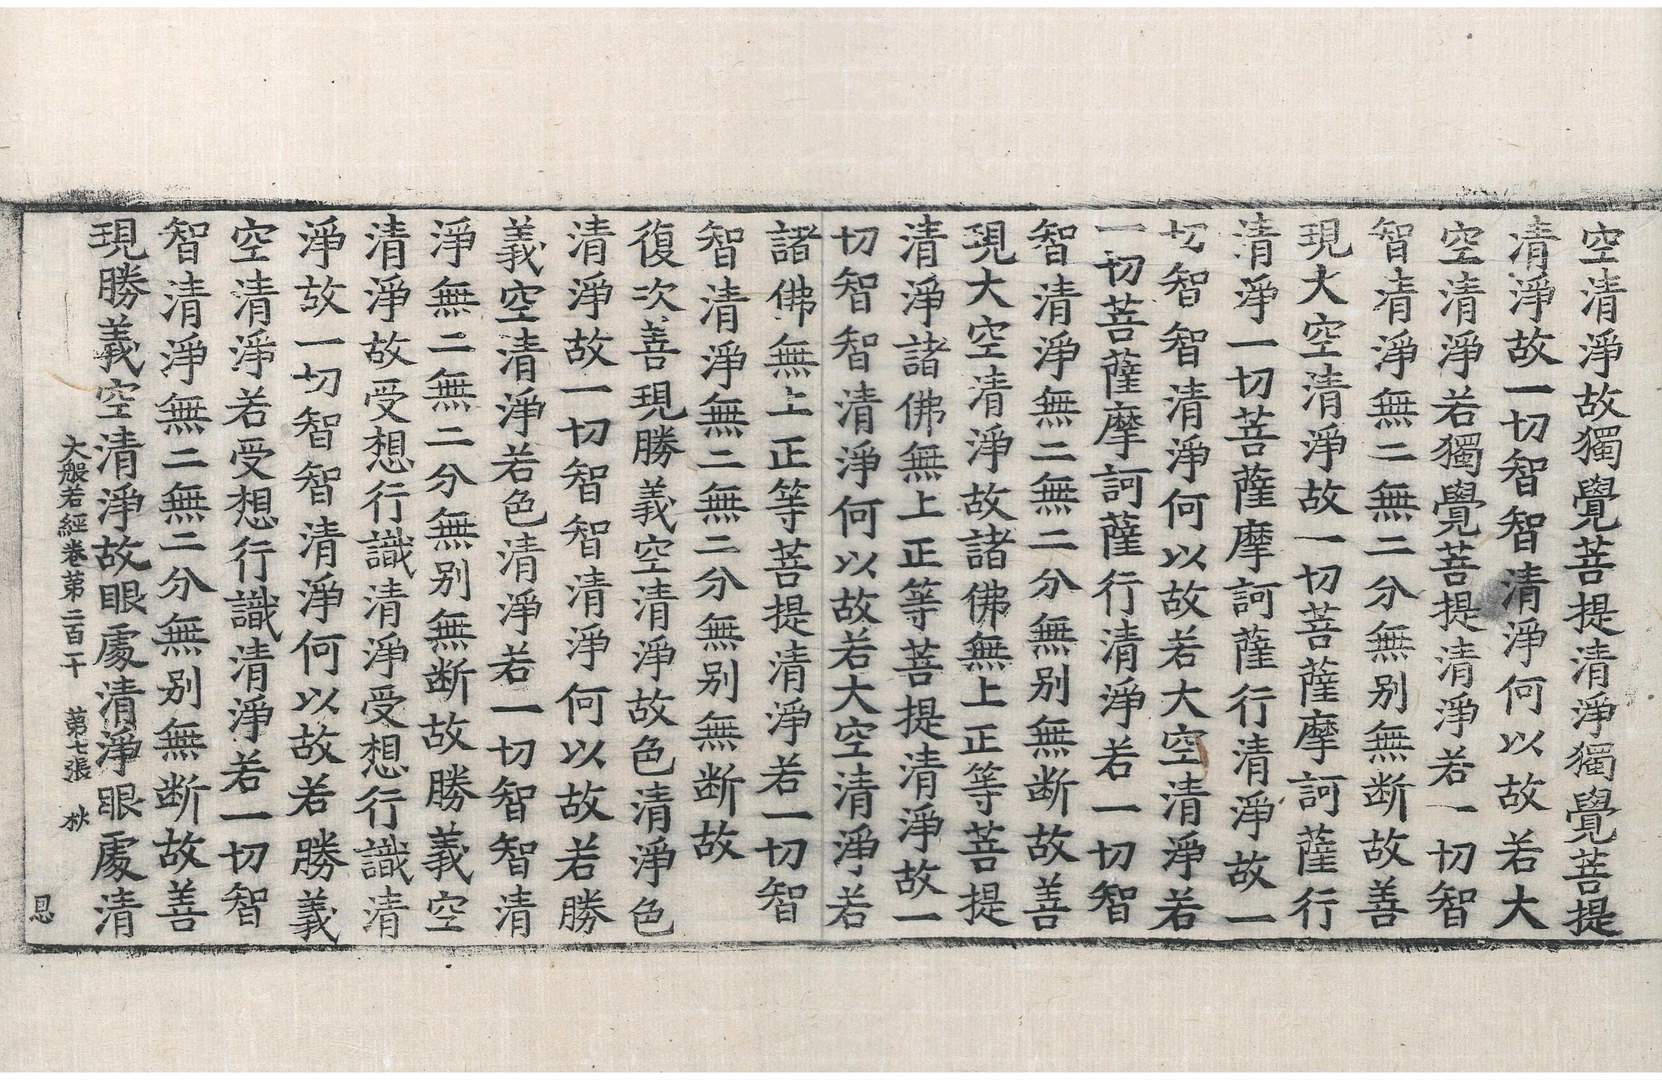 空清淨故獨覺菩提清淨獨覺菩提
清淨故一切智智清淨何以故若大
空清淨若獨覺菩提清淨若一切智
智清淨無二無二分無別無断故善
現大空清淨故一切菩薩摩訶薩行
清淨一切菩薩摩訶薩行清淨故一
切智智清淨何以故若大空清淨若
一切菩薩摩訶薩行清淨若一切智
智清淨無二無二分無別無断故善
現大空清淨故諸佛無上正等菩提
清淨諸佛無上正等菩提清淨故一
切智智清淨何以故若大空清淨若
諸佛無上正等菩提清淨若一切智
智清淨無二無二分無別無断故
復次善現勝義空清淨故色清淨色
清淨故一切智智清淨何以故若勝
義空清淨若色清淨若一切智智清
淨無二無二分無別無断故勝義空
清淨故受想行識清淨受想行識清
淨故一切智智清淨何以故若勝義
空清淨若受想行識清淨若一切智
智清淨無二無二分無別無断故善
現勝義空清淨故眼處清淨眼處清
大般若經卷第二百一十 第七張 秋
恩